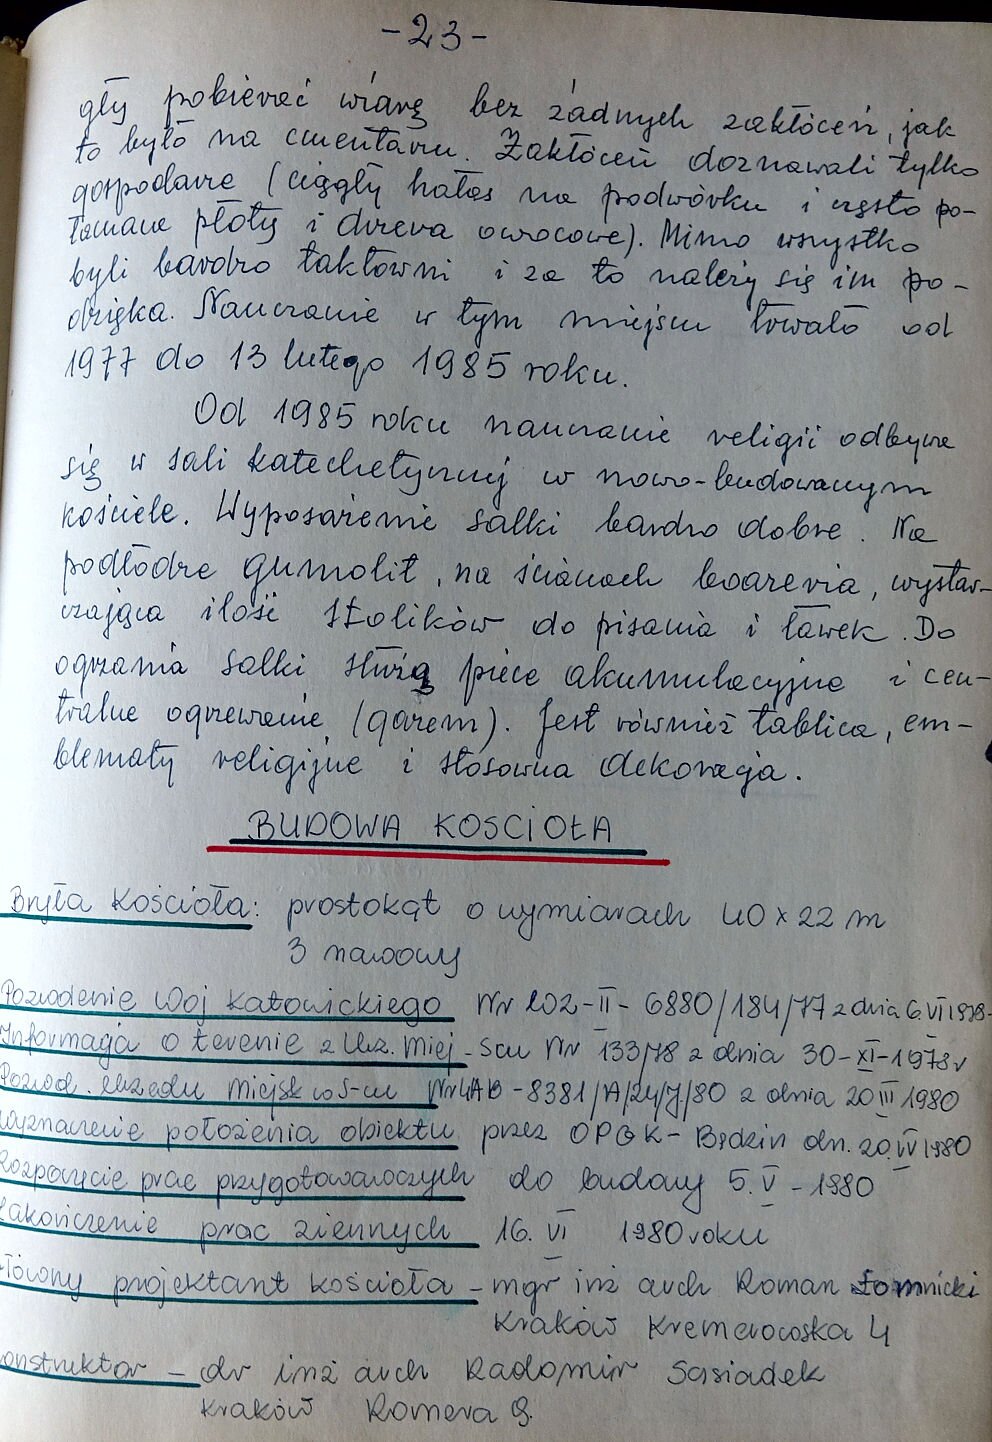 -23-
gły pobierać wiarę bez żadnych zakłóceń, jak
to było na cmentarzu. Zakłóceń doznawali tylko
gospodarze (ciągły hałas na podwórku i często po-
łamane płoty i drzewa owocowe). Mimo wszystko
byli bardzo taktowni i za to należy się im po-
dzięka. Nauczanie w tym miejscu trwało od
1977 do 13 lutego 1985 roku.
Od 1985 roku nauczanie religii odbywa
się w sali katechetycznej w nowo-budowanym
kościele. Wyposażenie salki bardzo dobre. Na
podłodze gumolit, na ścianach boazeria, wystar-
czająca ilość stolików do pisania i ławek. Do
ogrzania salki służą piece akumulacyjne i cen-
tralne ogrzewanie (gazem). Jest również tablica, em-
blematy religijne i stosowna dekoracja.
BUDOWA KOSCIOŁA
Bryła Kościoła: prostokąt o wymiarach 40 x 22 m
3 nawowy
Pozwolenie Woj Katowickiego Nr 202-II-6880/184/77 z dnia 6.VI 1978
Informacja o terenie z Urz. Miej-scu Nr 133/78 z dnia 30-XI-1978 r
Pozwol. Urzędu Miejsk w S-cu Nr UAB-8381/A/24/J/80 z dnia 20 III 1980
wyznaczenie położenia obiektu przez OPGK-Będzin dn. 20.IV 1980
Rozpoczęcie prac przygotowawczych do budowy 5.V-1980
Zakończenie prac ziemnych 16. VI 1980 roku
Główny projektant kościoła - mgr inż arch Roman Łomnicki
Kraków Kremerowska 4
onstruktor - dr inż arch Radomir Sasiadek
Kraków Romera 9.